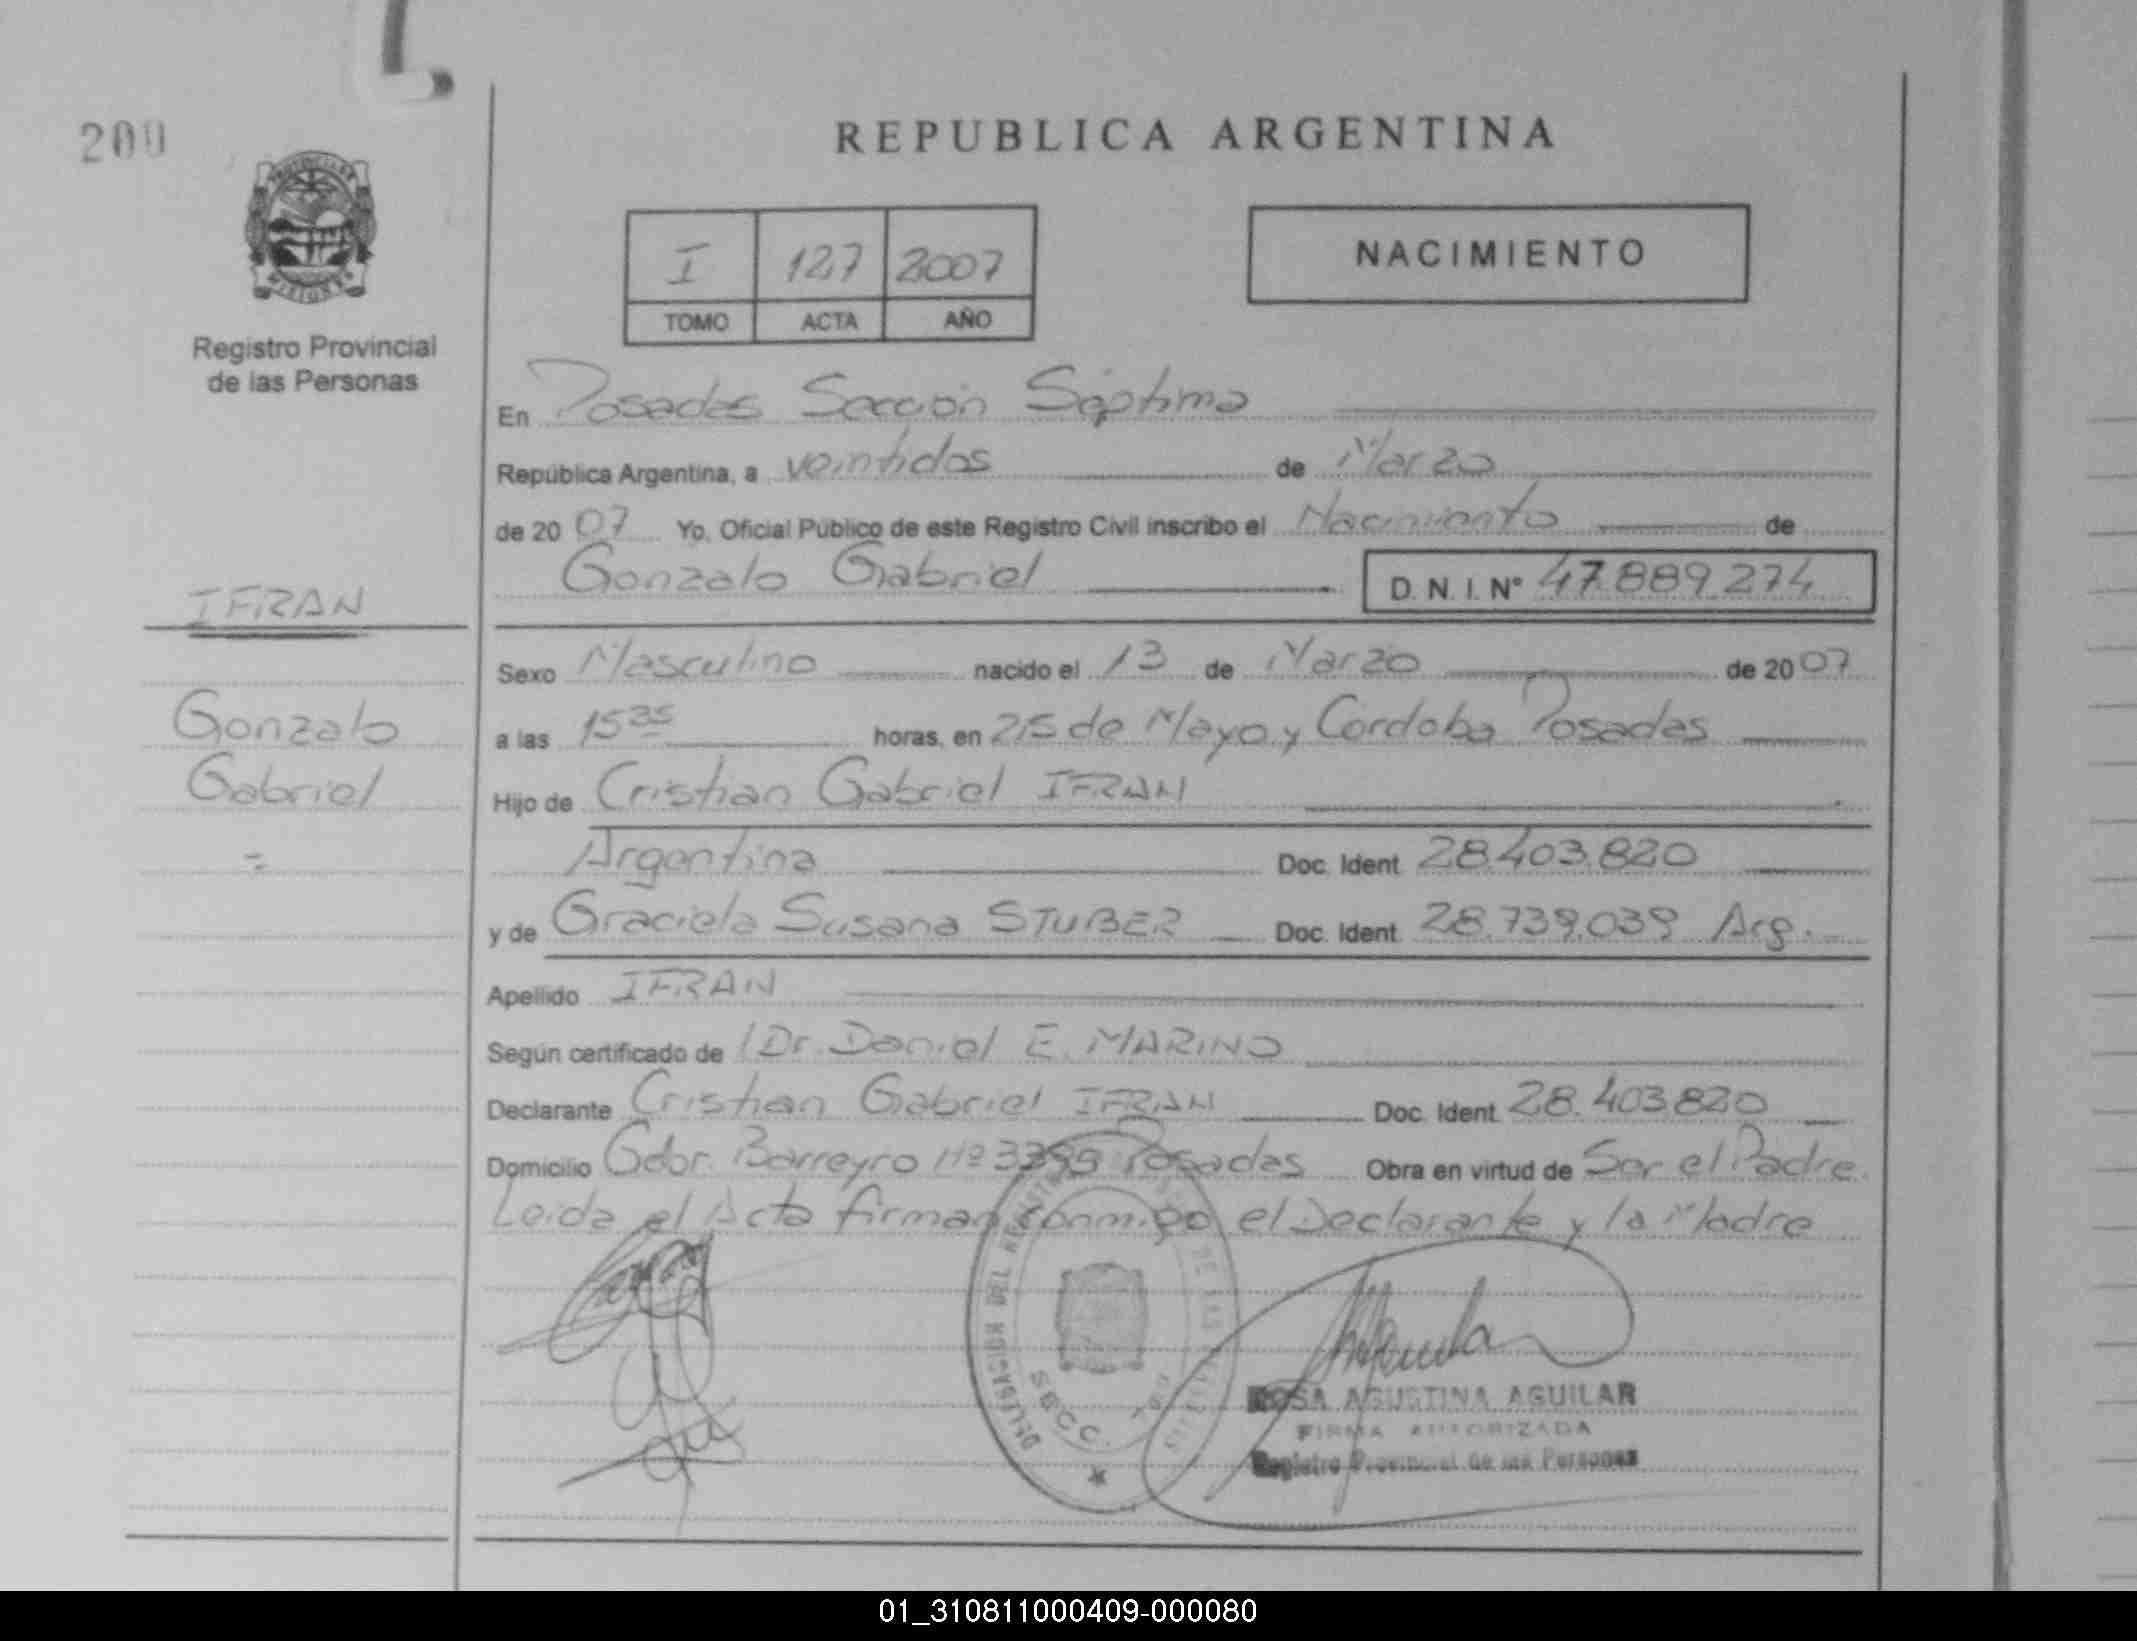 200
REPUBLICA ARGENTINA
I 127 2007
TOMO ACTA AÑO
NACIMIENTO
Registro Provincial
de las Personas
En Posadas Sección Séptima
República Argentina, a veintidos de Marzo
de 2007 Yo, Oficial Público de este Registro Civil inscribo el Nacimiento de
Gonzalo Gabriel D. N. I. Nº 47.889.274
IFRAN
Gonzalo
Gabriel
Sexo Masculino nacido el 13 de Marzo de 2007
a las 15 35 horas, en 25 de Mayo y Cordoba Posadas
Hijo de Cristian Gabriel IFRAN
Argentina Doc. Ident. 28.403.820
y de Graciela Susana STUBER Doc. Ident. 28.739.039 Arg.
Apellido IFRAN
Según certificado de Dr. Daniel E. MARINO
Declarante Cristian Gabriel IFRAN Doc. Ident. 28.403.820
Domicilio Gdor. Barreyro Nº 3399 Posadas Obra en virtud de Ser el Padre.
Leida el Acta firman conmigo el Declarante y la Madre
DELEGACION DEL
SECC.
ROSA AGUSTINA AGUILAR
FIRMA AUTORIZADA
Registro Provincial de las Personas
01_310811000409-000080